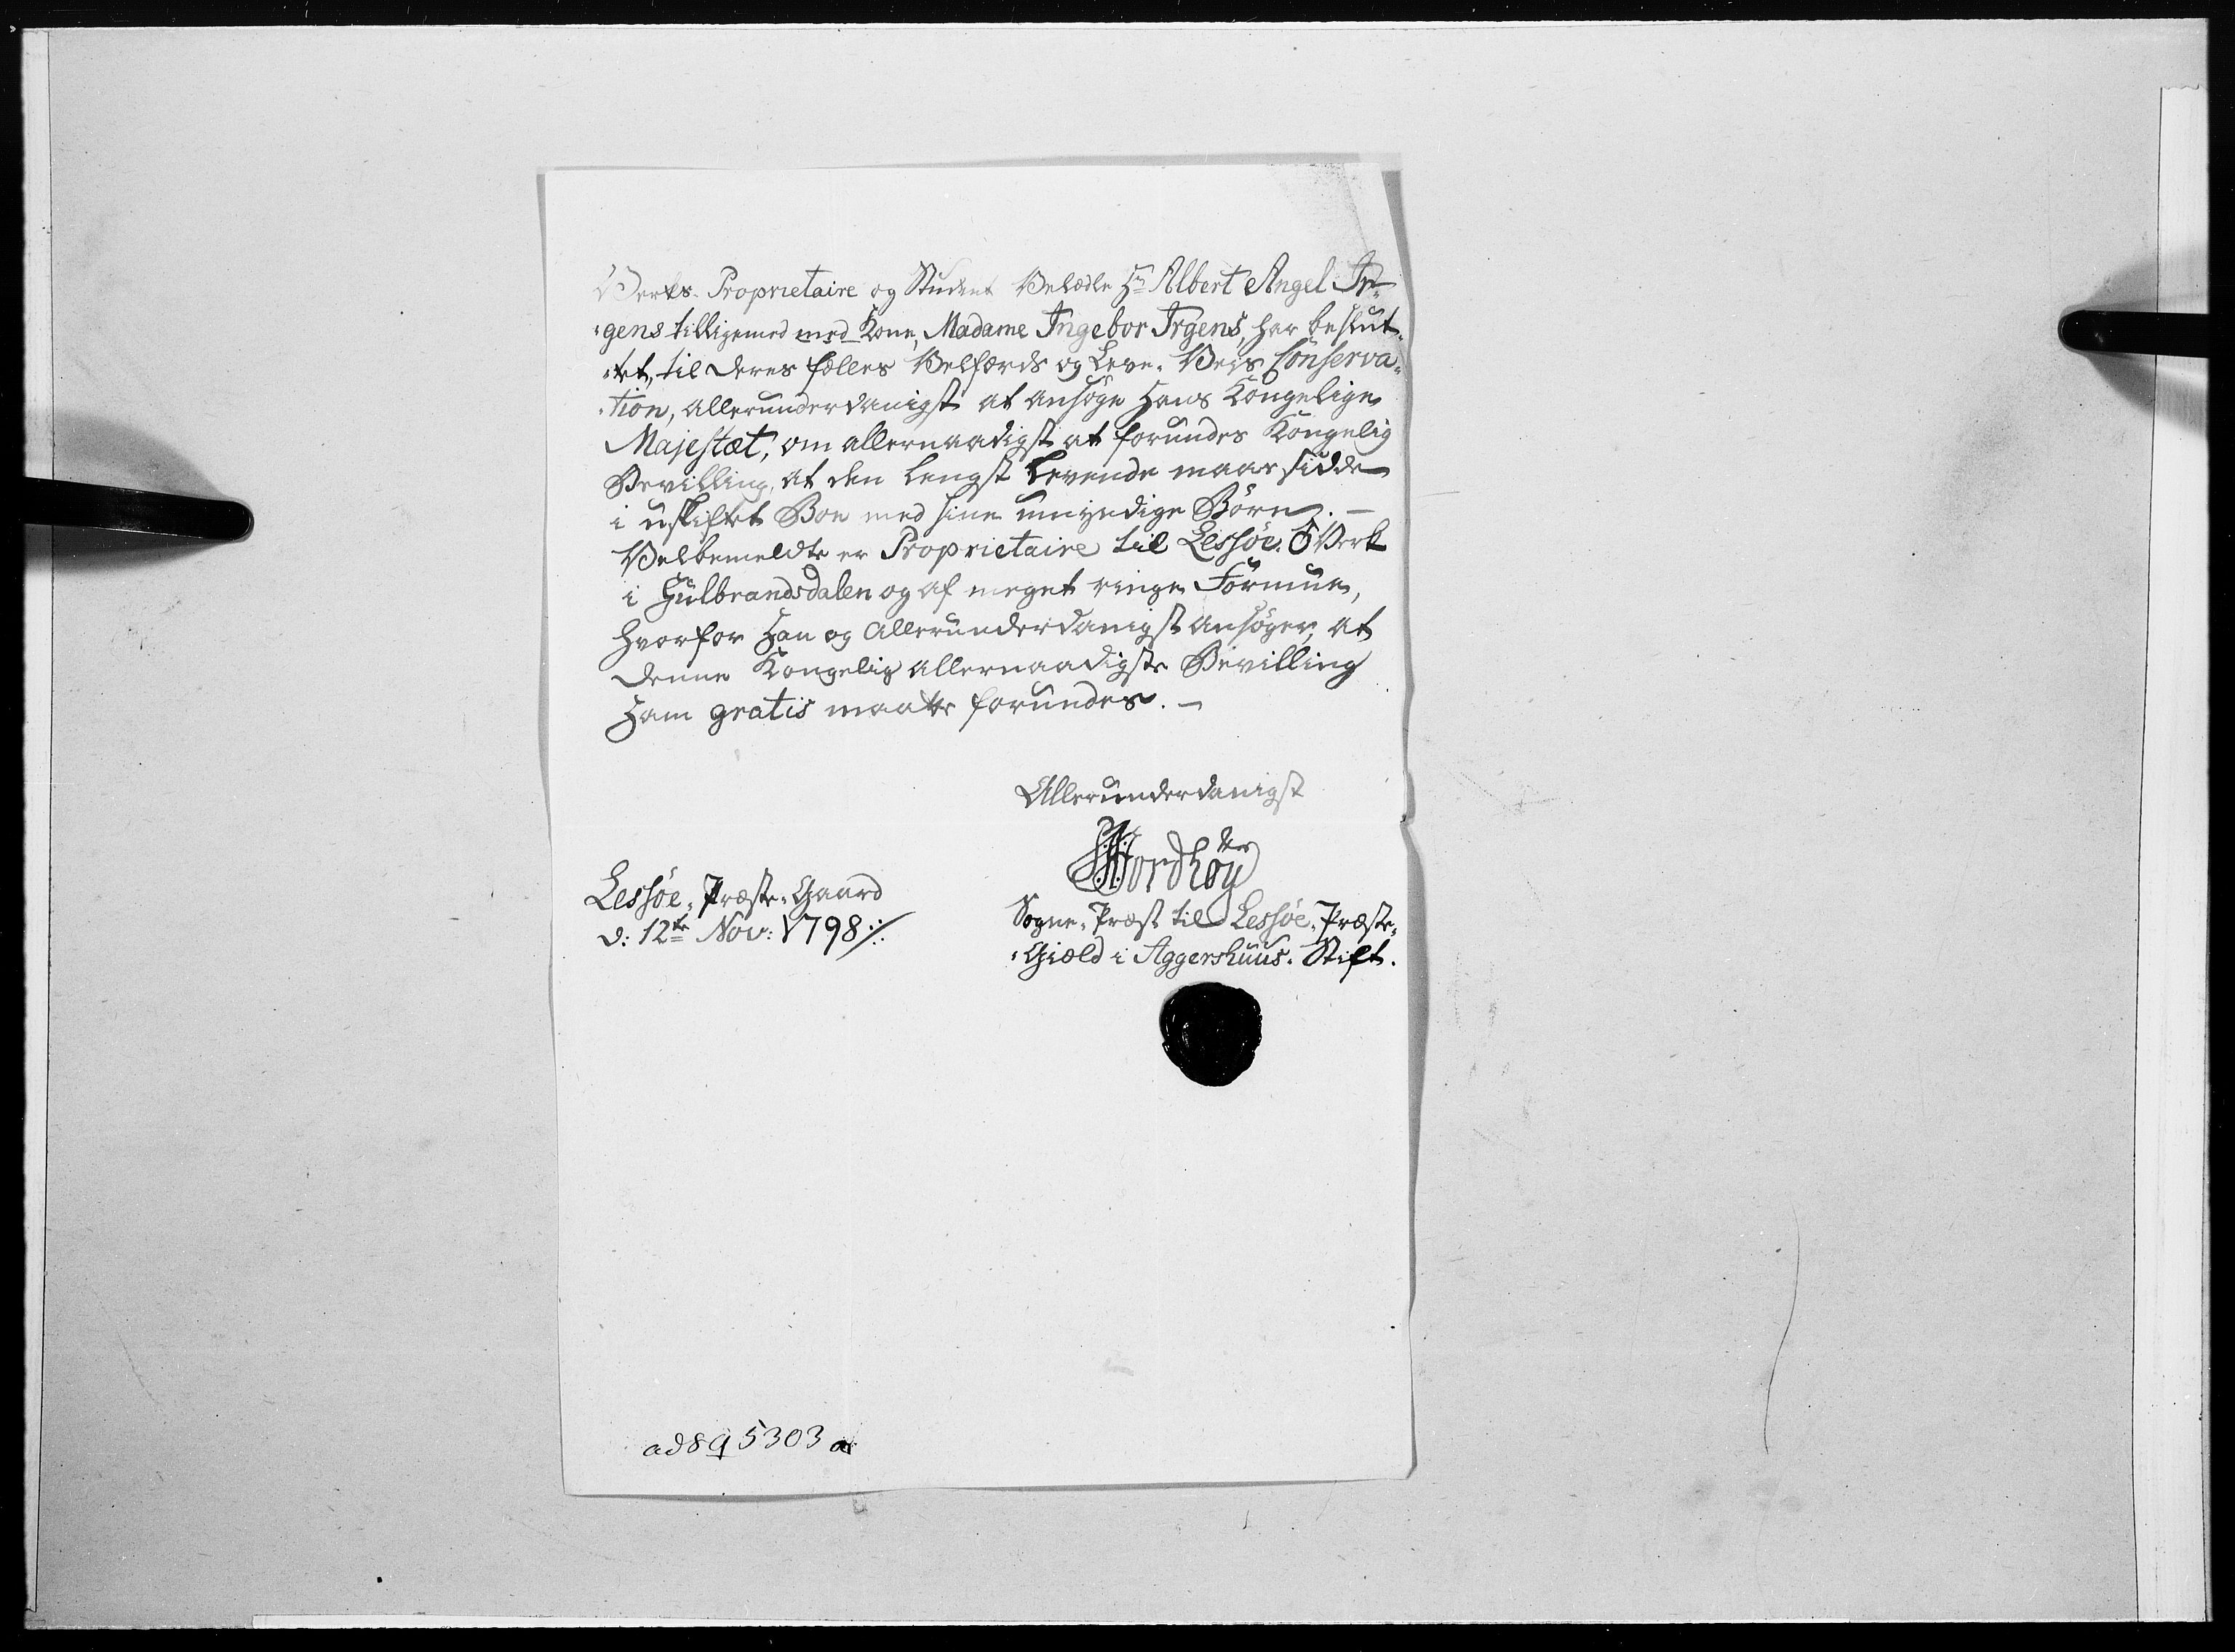 Verks-Proprietaire og Student Velædle Hr Albert Angel Ir-
gens tilligemed med Kone, Madame Ingebor Irgens, har beslut-
tet, til deres fælles Velfærds og Leve-Veis Conserva-
tion, allerunderdanigst at ansøge Hans Kongelige
Majestæt, om allernaadigst at forundes Kongelig
Bevilling, at den lengst levende maae sidde
i uskiftet Boe med sine umyndige Børn. —
Velbemeldte er Proprietaire til Lessøe-Verk
i Gulbrandsdalen og af meget ringe Formue,
hvorfor Han og allerunderdanigst ansøger, at
denne Kongelig allernaadigste Bevilling
Ham gratis maatte forundes. —
Allerunderdanigst
Nordhøy
Lessøe-Præste-Gaard
d: 12te Nov: 1798
Sogne-Præst til Lessøe-Præste-
Giæld i Aggershuus-Stift.
ad 89 5303